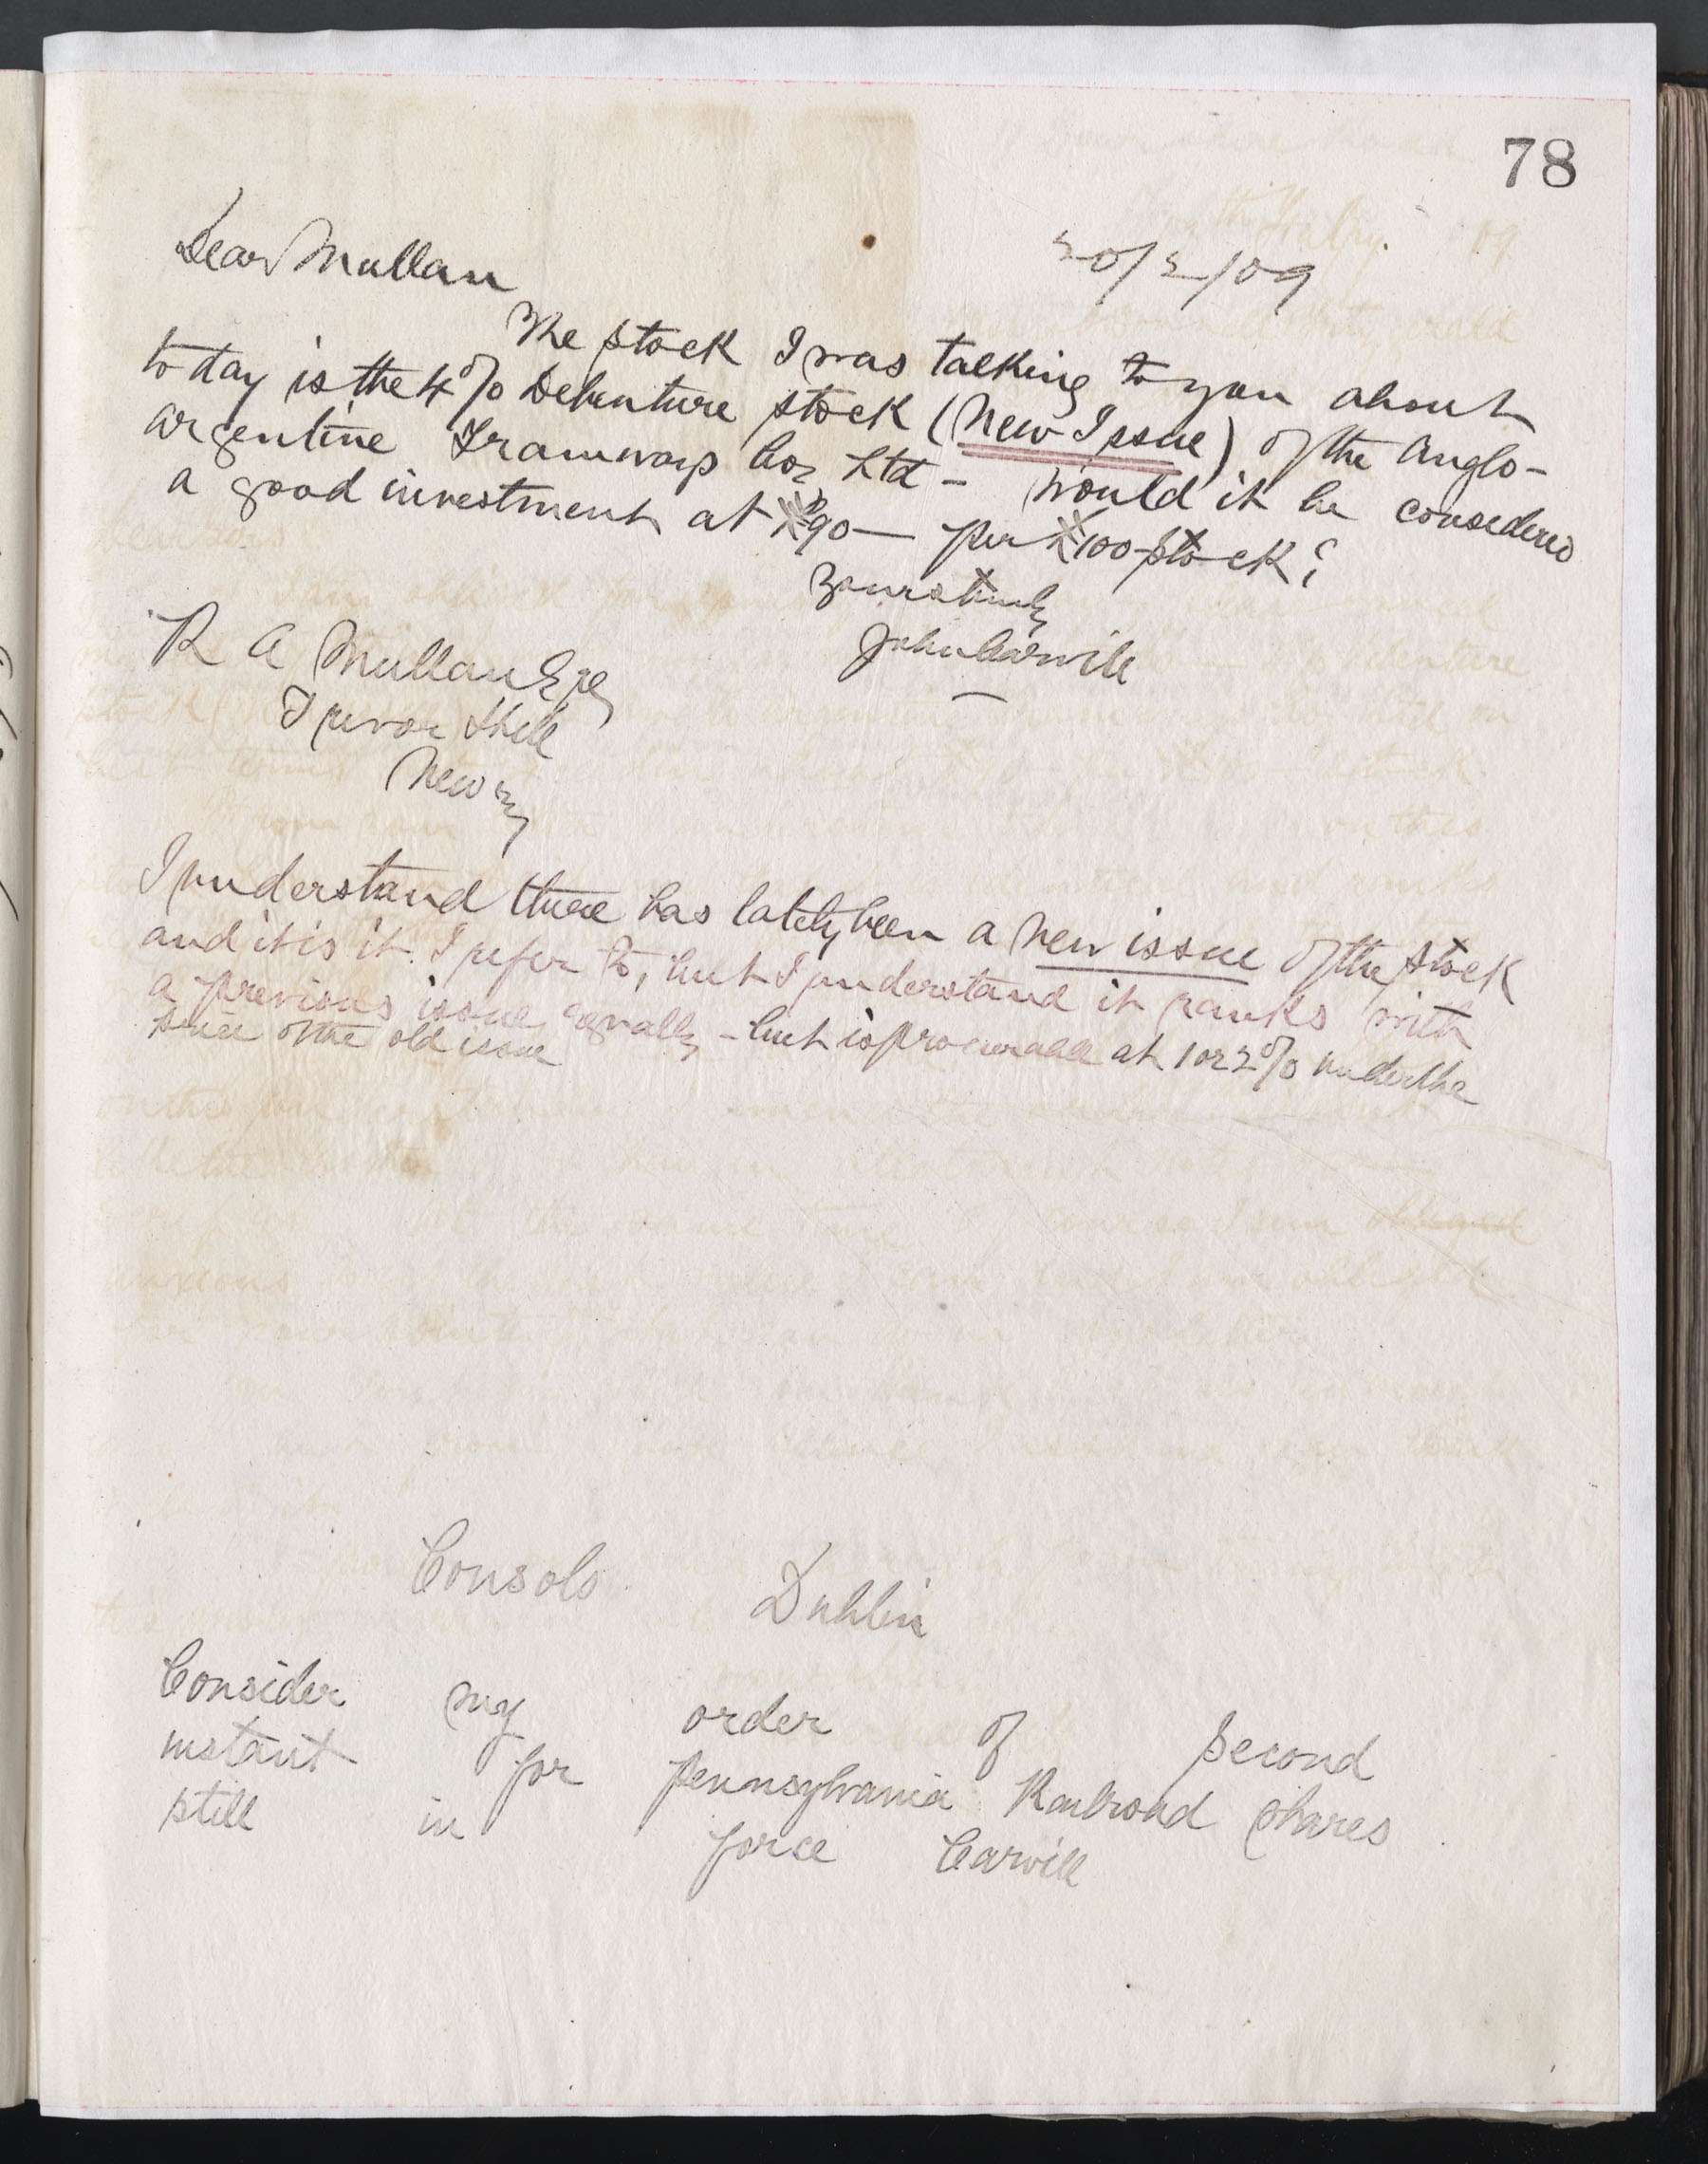 78
20/2/09
Dear Mullan
The stock I was talking to you about
to day is the 4% Debenture stock (New Issue) of the Anglo-
Argentine Tramways Coy Ltd - would it be considered
a good investment at £90 — per £100 stock?
Yours truly
John Carvill
R A Mullan Esqe
Trevor Hill
Newry
I understand there has lately been a new issue of the stock
and it is it I refer to, but I understand it ranks with
a previous issue equally - but is procurable at 1 or 2% under the
price of the old issue
Consols Dublin
Consider my order of second
instant for Pennsylvania Railroad shares
still in force Carvill